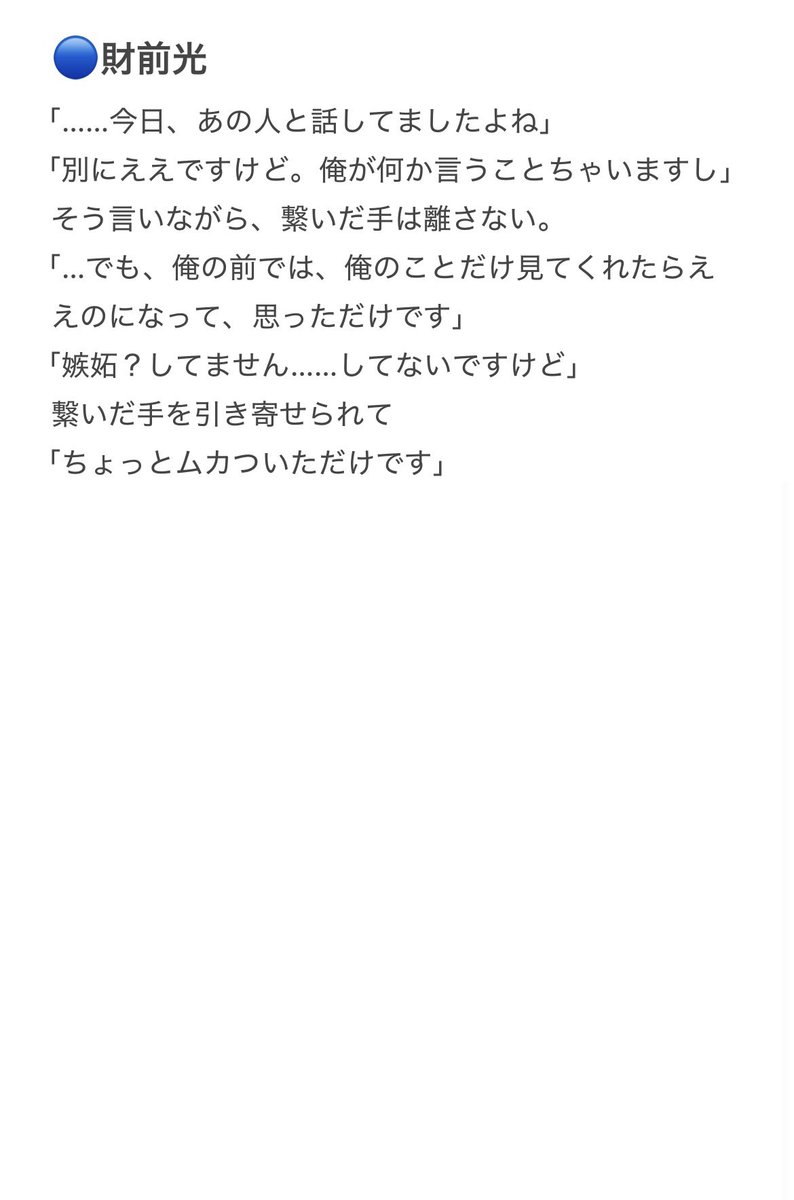 🔵財前光
「……今日、あの人と話してましたよね」
「別にええですけど。俺が何か言うことちゃいますし」
そう言いながら、繋いだ手は離さない。
「…でも、俺の前では、俺のことだけ見てくれたらえ
えのになって、思っただけです」
「嫉妬？してません……してないですけど」
繋いだ手を引き寄せられて
「ちょっとムカついただけです」